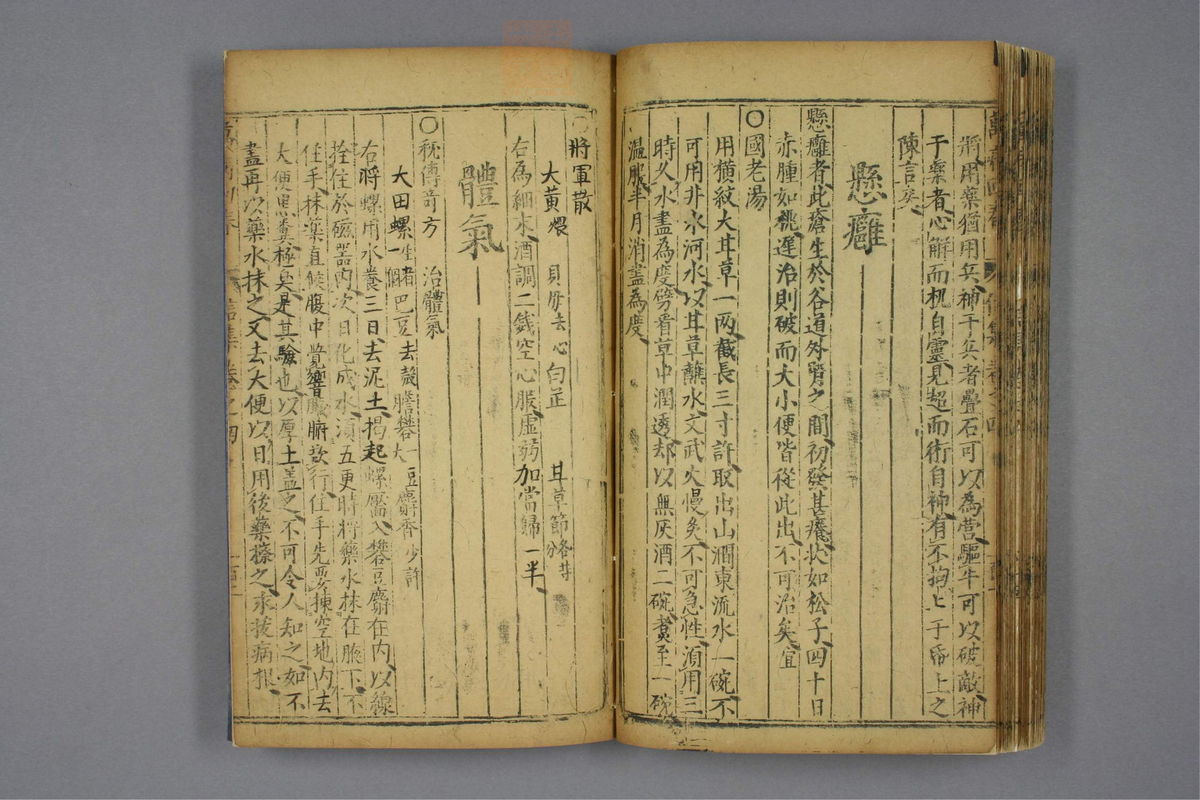 將用藥猶用兵神于兵者疊石可以為营驅牛可以破敵神
于藥者心解而机自靈見超而術自神有不拘匕于帋上之
陳言矣
懸癰
懸癰者此瘡生於谷道外腎之間初發甚癢狀如松子四十日
赤腫如桃遲治則破而大小便皆從此出不可治矣宜
〇國老湯
用横紋大甘草一两截長三寸許取出山澗東流水一碗不
可用井水河水以甘草蘸水文武火慢炙不可急性湏用三
時久水盡為度劈看草中潤透却以無灰酒二碗煑至一碗
温服半月消盡為度
〇將軍散
大黃煨 貝母去心 白芷 甘草節各等分
右為細末酒調二錢空心服虚弱加當歸一半
體氣
〇秘傳奇方 治體氣
大田螺一個生者 巴豆去殼 膽礬一豆大 麝香少許
右將螺用水養三日去泥土揭起螺靨入礬豆麝在内以線
拴住於磁器内次日化成水湏五更時將藥水抹在腋下不
住手抹藥直候腹中覺響臟腑欲行住手先要揀空地内去
大便黑糞極臭是其驗也以厚土盖之不可令人知之如不
盡再以藥水抹之又去大便以日用後藥擦之永拔病根